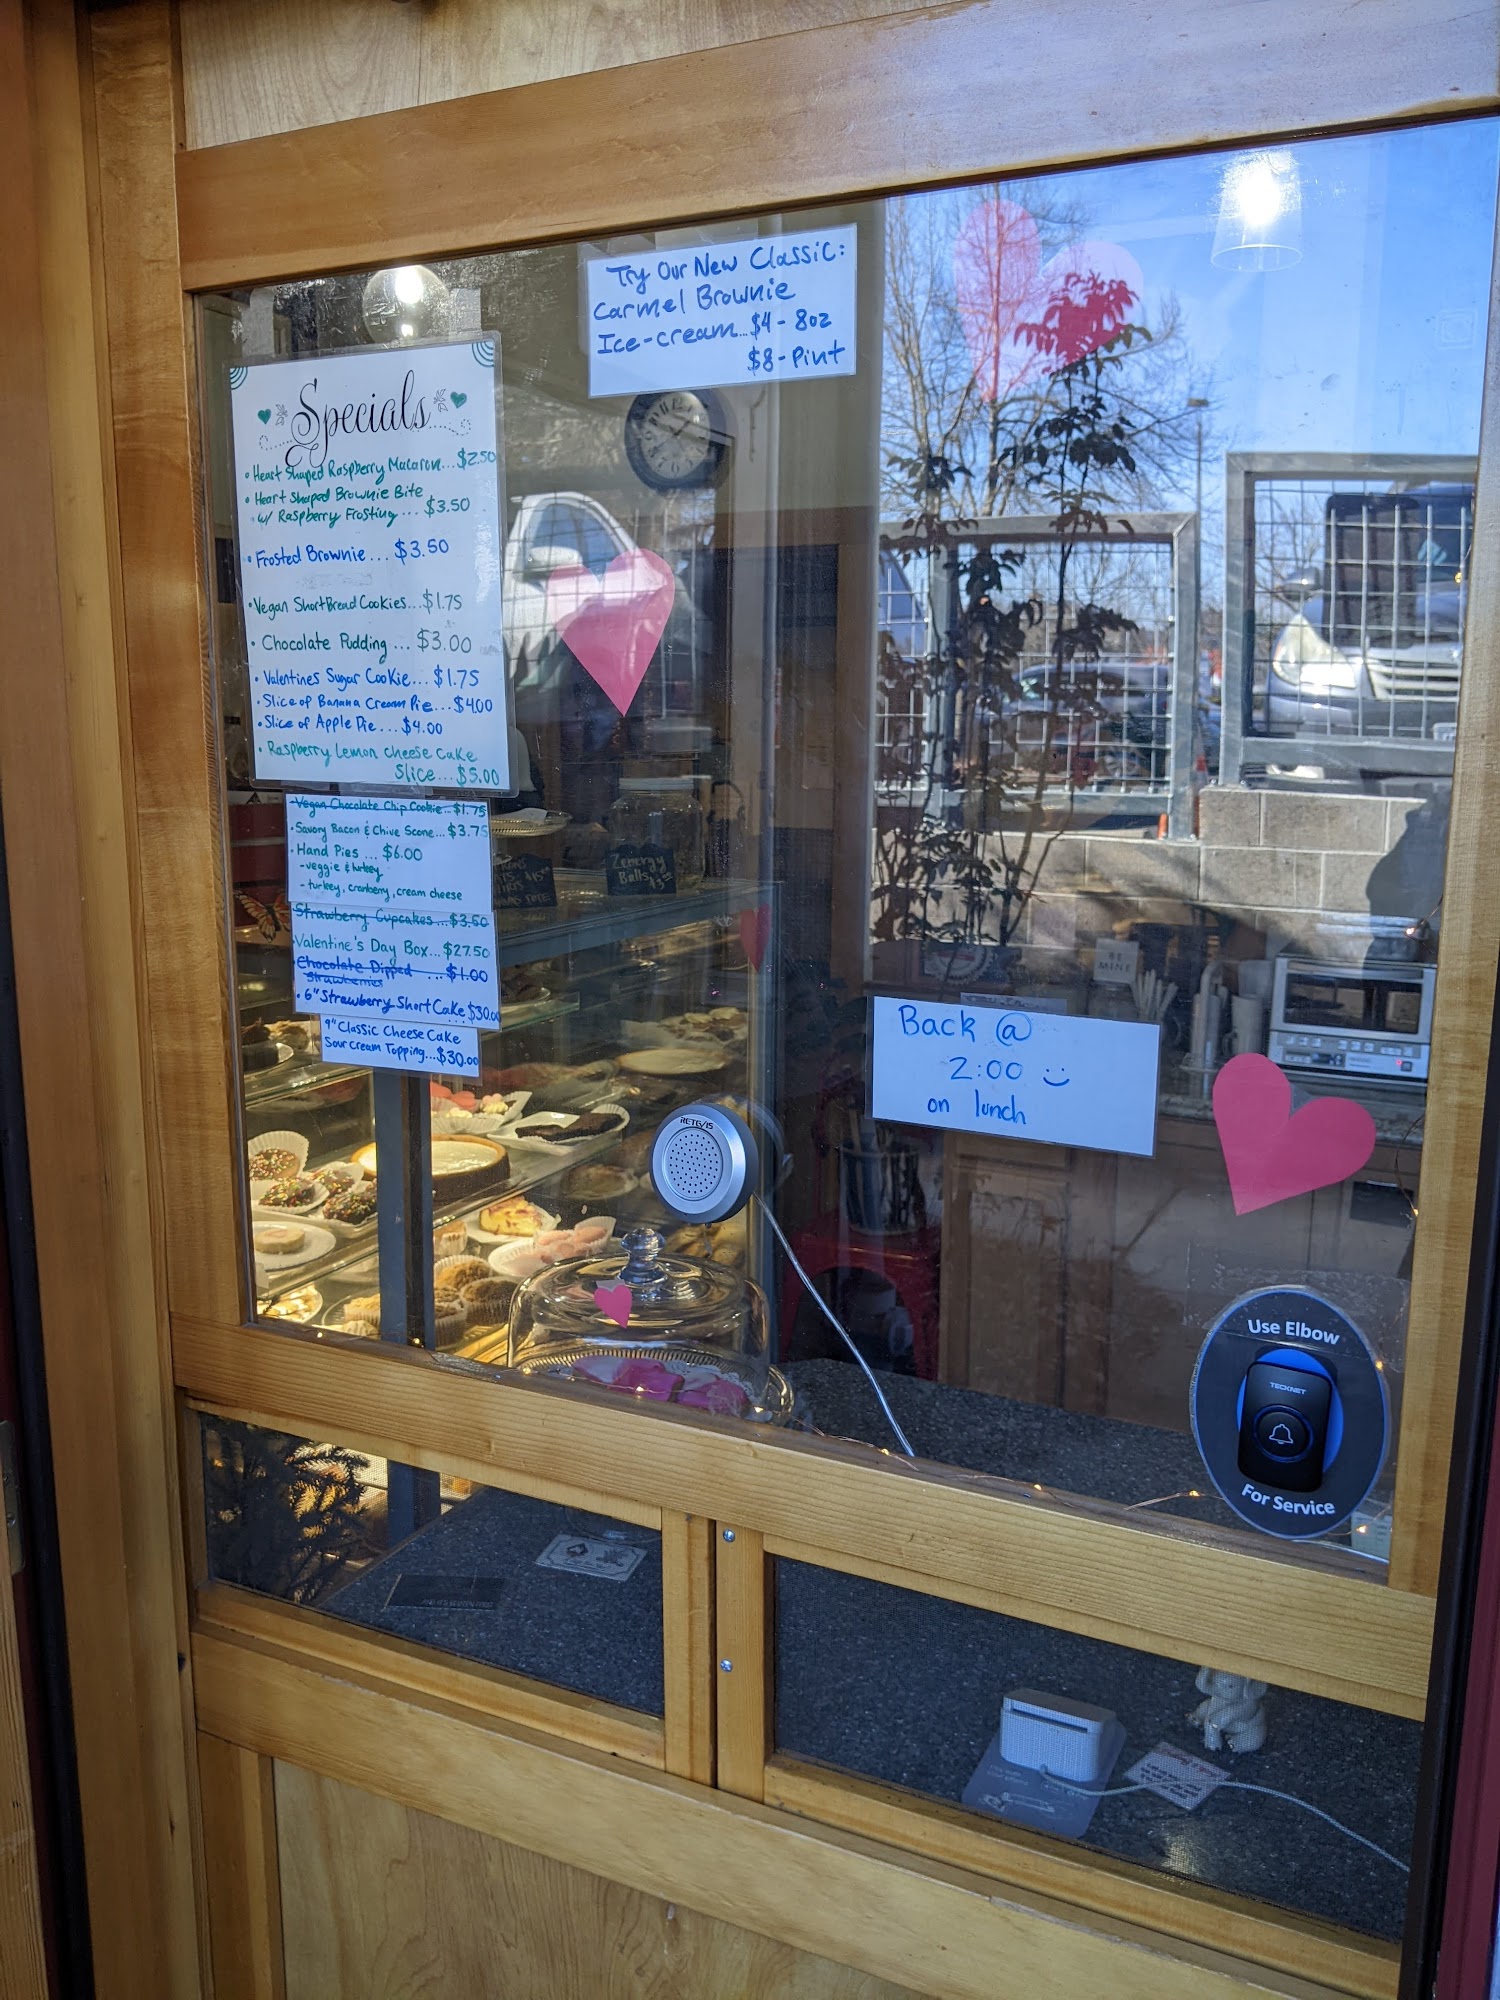 Try Our New Classic:
Carmel Brownie
Ice-cream...$4-8oz
$8-Pint
Specials
• Heart Shaped Raspberry Macaron...$2.50
• Heart Shaped Brownie Bite
w/ Raspberry Frosting ... $3.50
• Frosted Brownie... $3.50
• Vegan ShortBread Cookies...$1.75
• Chocolate Pudding ... $3.00
• Valentines Sugar Cookie... $1.75
• Slice of Banana Cream Pie...$4.00
• Slice of Apple Pie...$4.00
• Raspberry Lemon Cheese Cake
Slice...$5.00
• Vegan Chocolate Chip Cookie...$1.75
• Savory Bacon & Chive Scone...$3.75
• Hand Pies ... $6.00
- veggie & turkey
- turkey, cranberry, cream cheese
Strawberry Cupcakes...$3.50
Valentine's Day Box...$27.50
Chocolate Dipped ...$1.00
Strawberries
• 6" Strawberry Short Cake $30.00
9" Classic Cheese Cake
Sour Cream Topping...$30.00
Zenergy
Balls
BE
MINE
Back @
2:00
on lunch
RETEVIS
Use Elbow
TECKNET
For Service